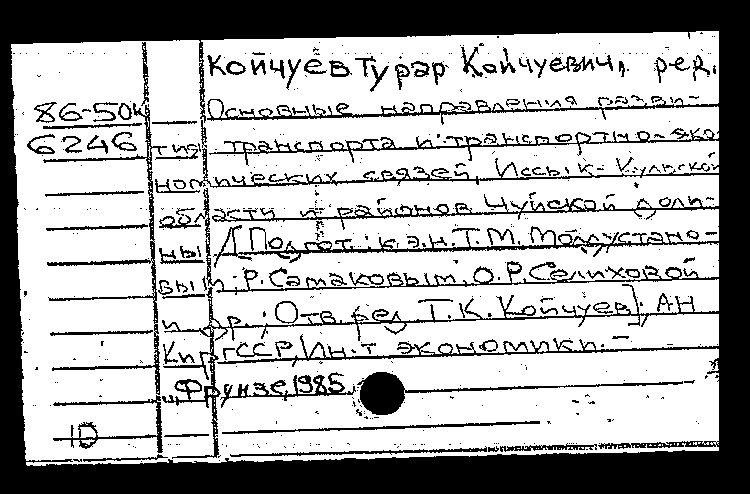 Койчуев Турар Койчуевич, ред.
86-50к Основные направления разви-
6246 тия транспорта и транспортно-эко
номических связей, Иссык-Кульской
области и районов Чуйской доли-
ны /[Подгот.: к.э.н. Т.М. Молдустано-
вым; Р. Самаковым, О.Р. Селиховой
и др.; Отв. ред. Т.К. Койчуев]; АН
КиргССР, Ин-т экономики. -
Фрунзе, 1985.
10